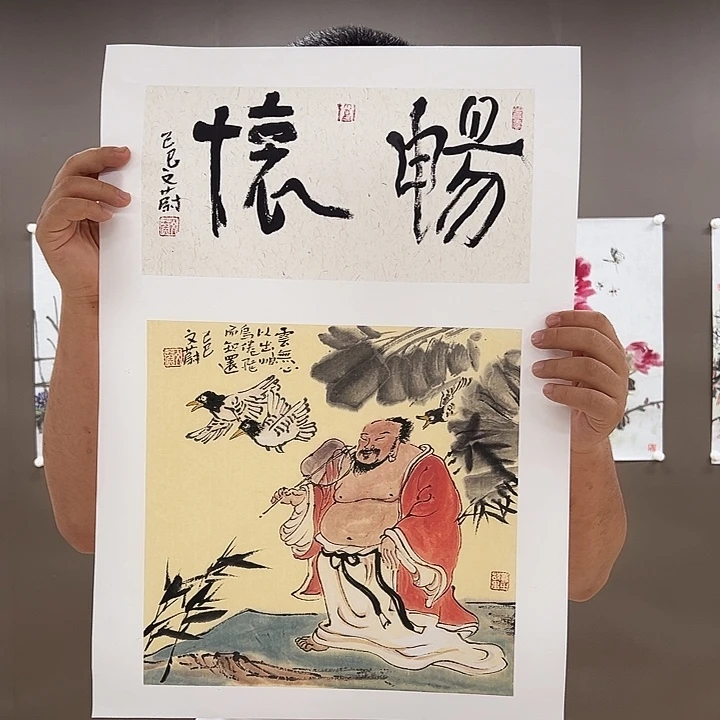 暢懷
乙巳文蔚
雲無心
以出岫
鳥倦飛
而知還
乙巳
文蔚